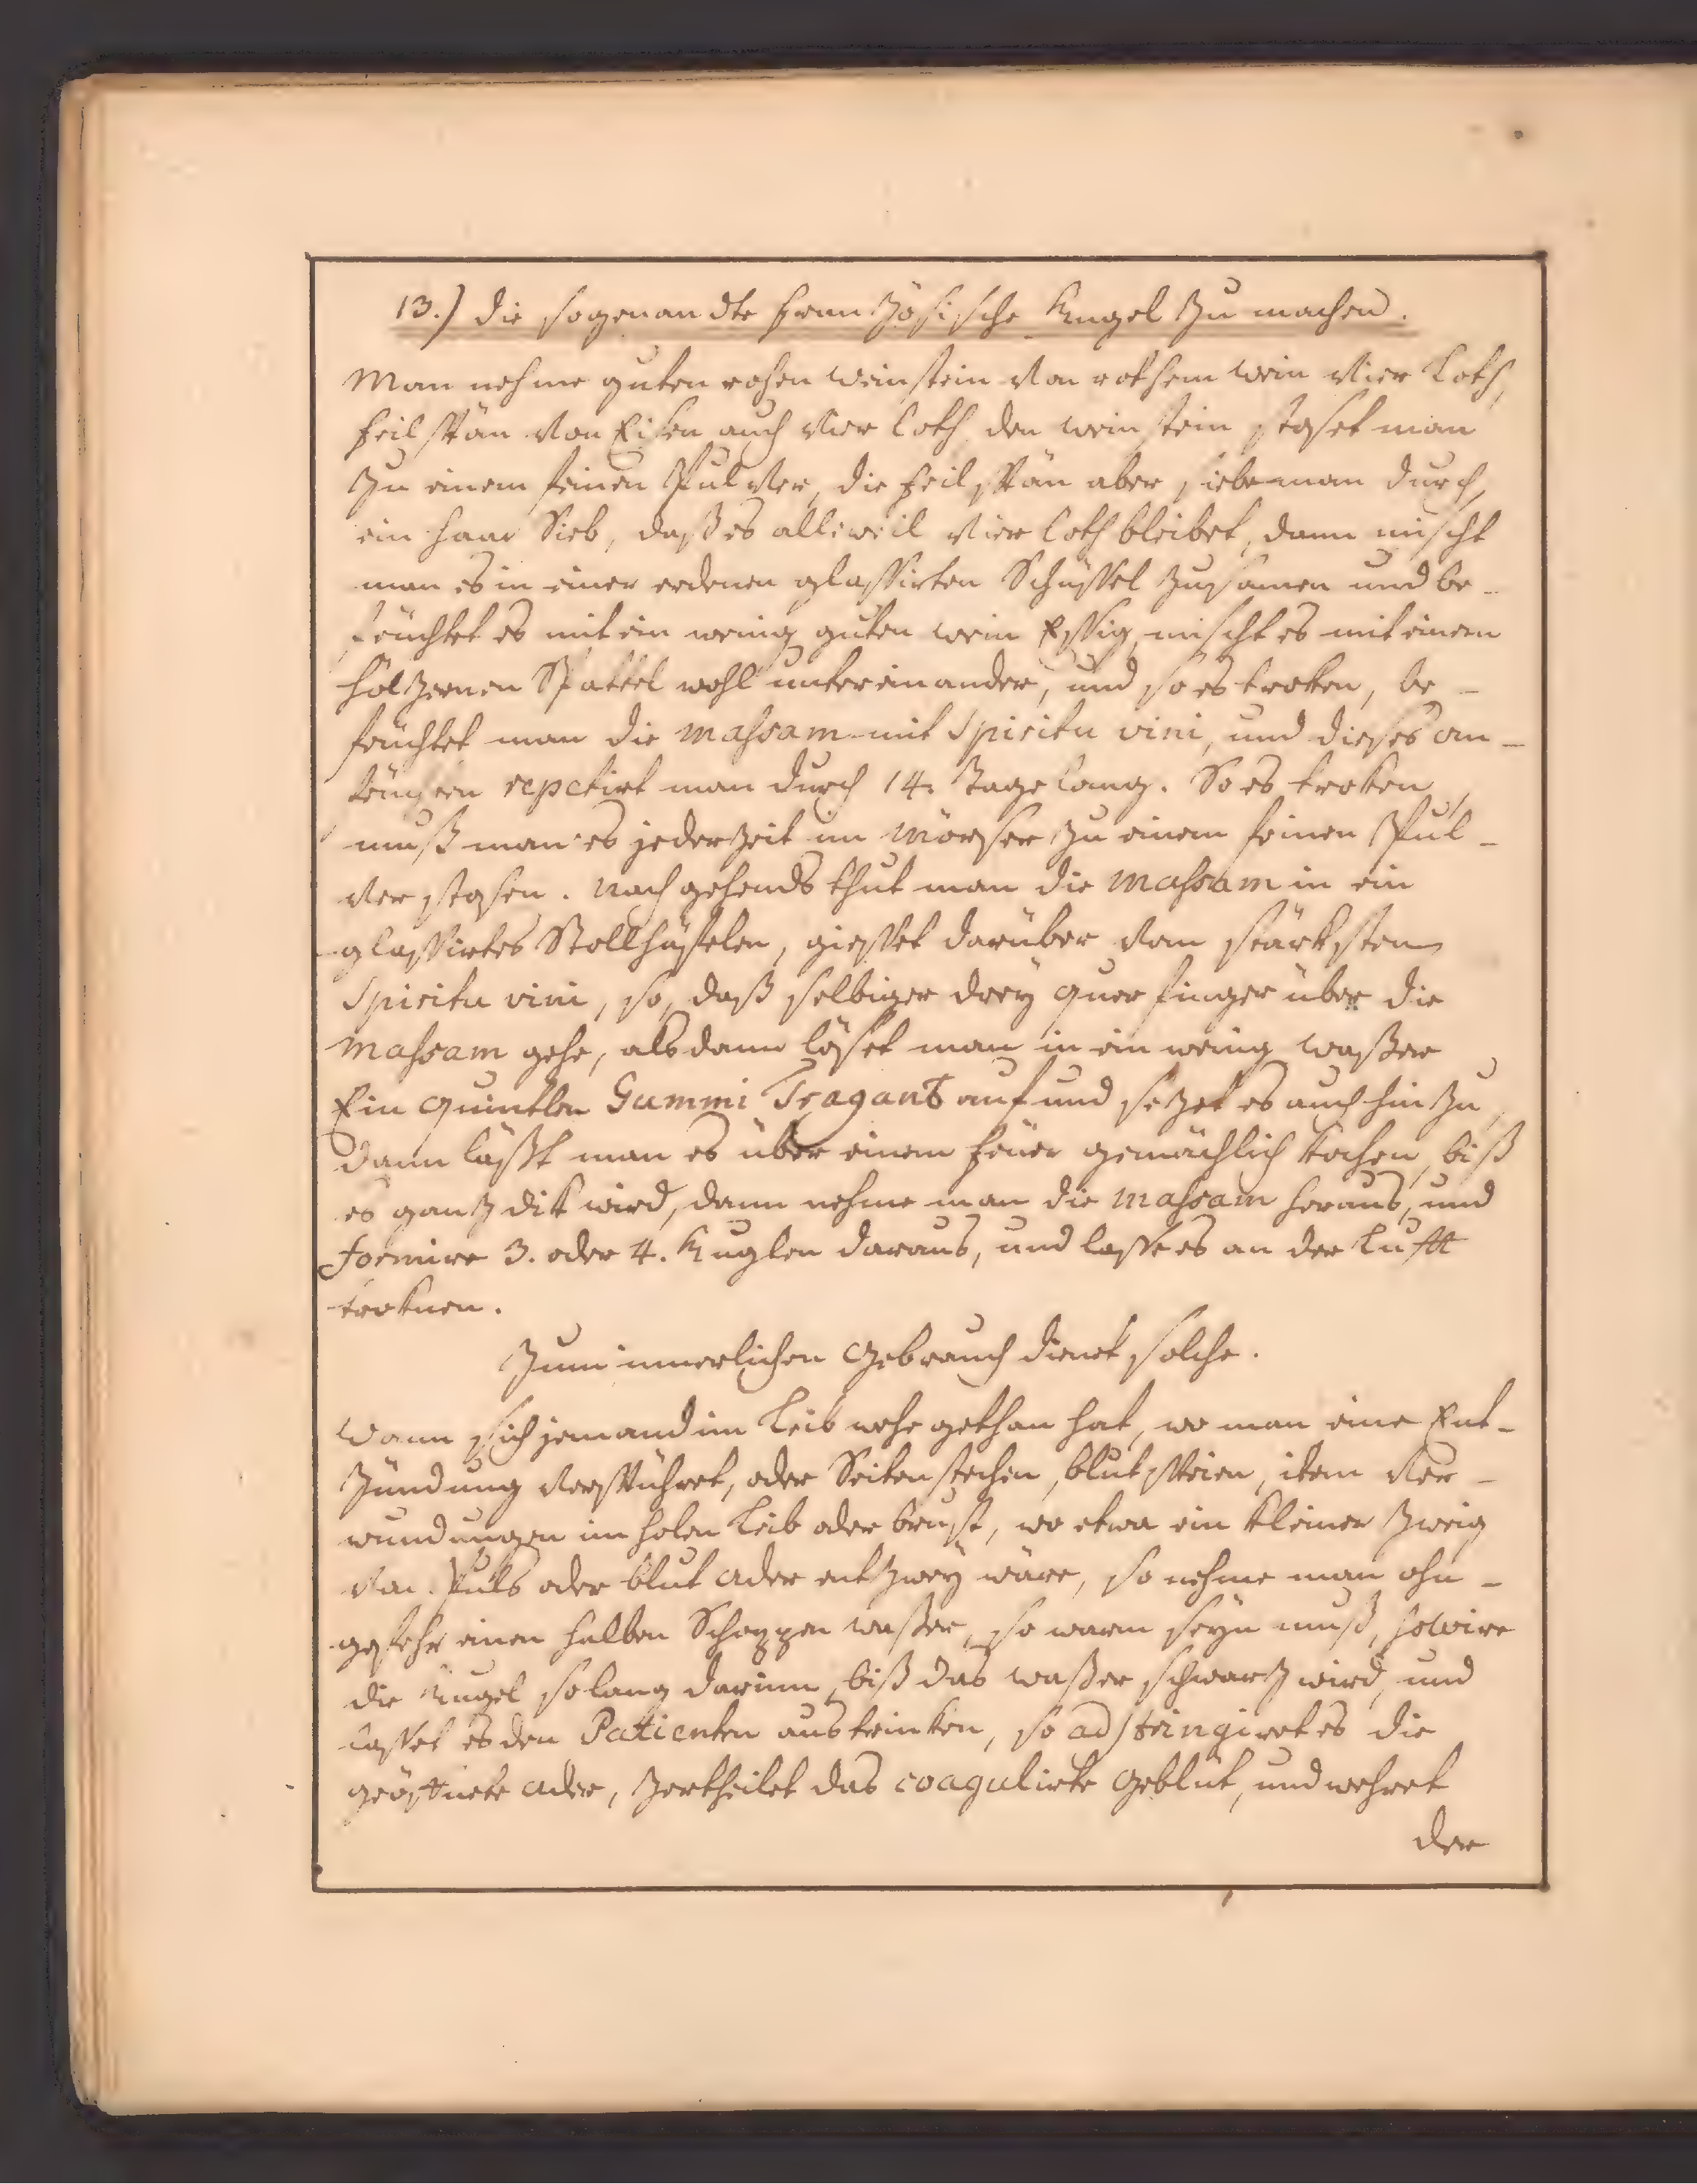 13.) die sogenandte frantzösische Kugel zu machen.
Man nehme guten rohen Weinstein von rothem Wein vier Loth,
feilspän von Eisen auch vier Loth, den Weinstein stoset man
zu einem feinen Pulver, die feilspän aber siebe man durch
ein haar Sieb, daß es alleweil vier Loth bleibet, dann mischt
man es in einer erdenen glassirten Schüssel zusamen und be-
feüchtet es mit ein wenig guten Wein Essig, mischt es mit einem
höltzernen Spattel wohl untereinander, und so es troken, be-
feüchtet man die massam mit Spiritu vini, und dieses an-
repetirt man durch 14. Tage lang. So es troken
muß man es jederzeit im Mörser zu einem feinen Pul-
ver stosen. Nachgehends thut man die massam in ein
glassirtes Stollhäfelen, giesset darüber vom stärksten
Spiritu vini, so, daß selbiger dreÿ quer finger über die
massam gehe, alsdann löset man in ein wenig Waßer
Ein quintlen Gummi Tragant auf und setzet es auch hinzu,
dann läßt man es über einem feüer gemächlich kochen, biß
es gantz dik wird, dann nehme man die massam heraus, und
formire 3. oder 4. Kuglen daraus, und lasse es an der Lufft
troknen.
Zum innerlichen Gebrauch dienet solche.
Wann sich jemand im Leib wehe gethan hat, wo man eine Ent-
zündung verspühret, oder Seitenstechen, blutspeien, item ver-
wundungen im holen Leib oder brust, wo etwa ein kleiner Zweig
von Puls oder blut ader entzweÿ wäre, so nehme man ohn-
gefehr einen halben Schoppen waßer, so warm seÿn muß, solvire
die Kugel so lang darinn, biß das waßer schwartz wird, und
lasset es den Patienten austrinken, so adstringiret es die
geöffnete ader, zertheilet das coagulirte Geblüt, und wehret
der